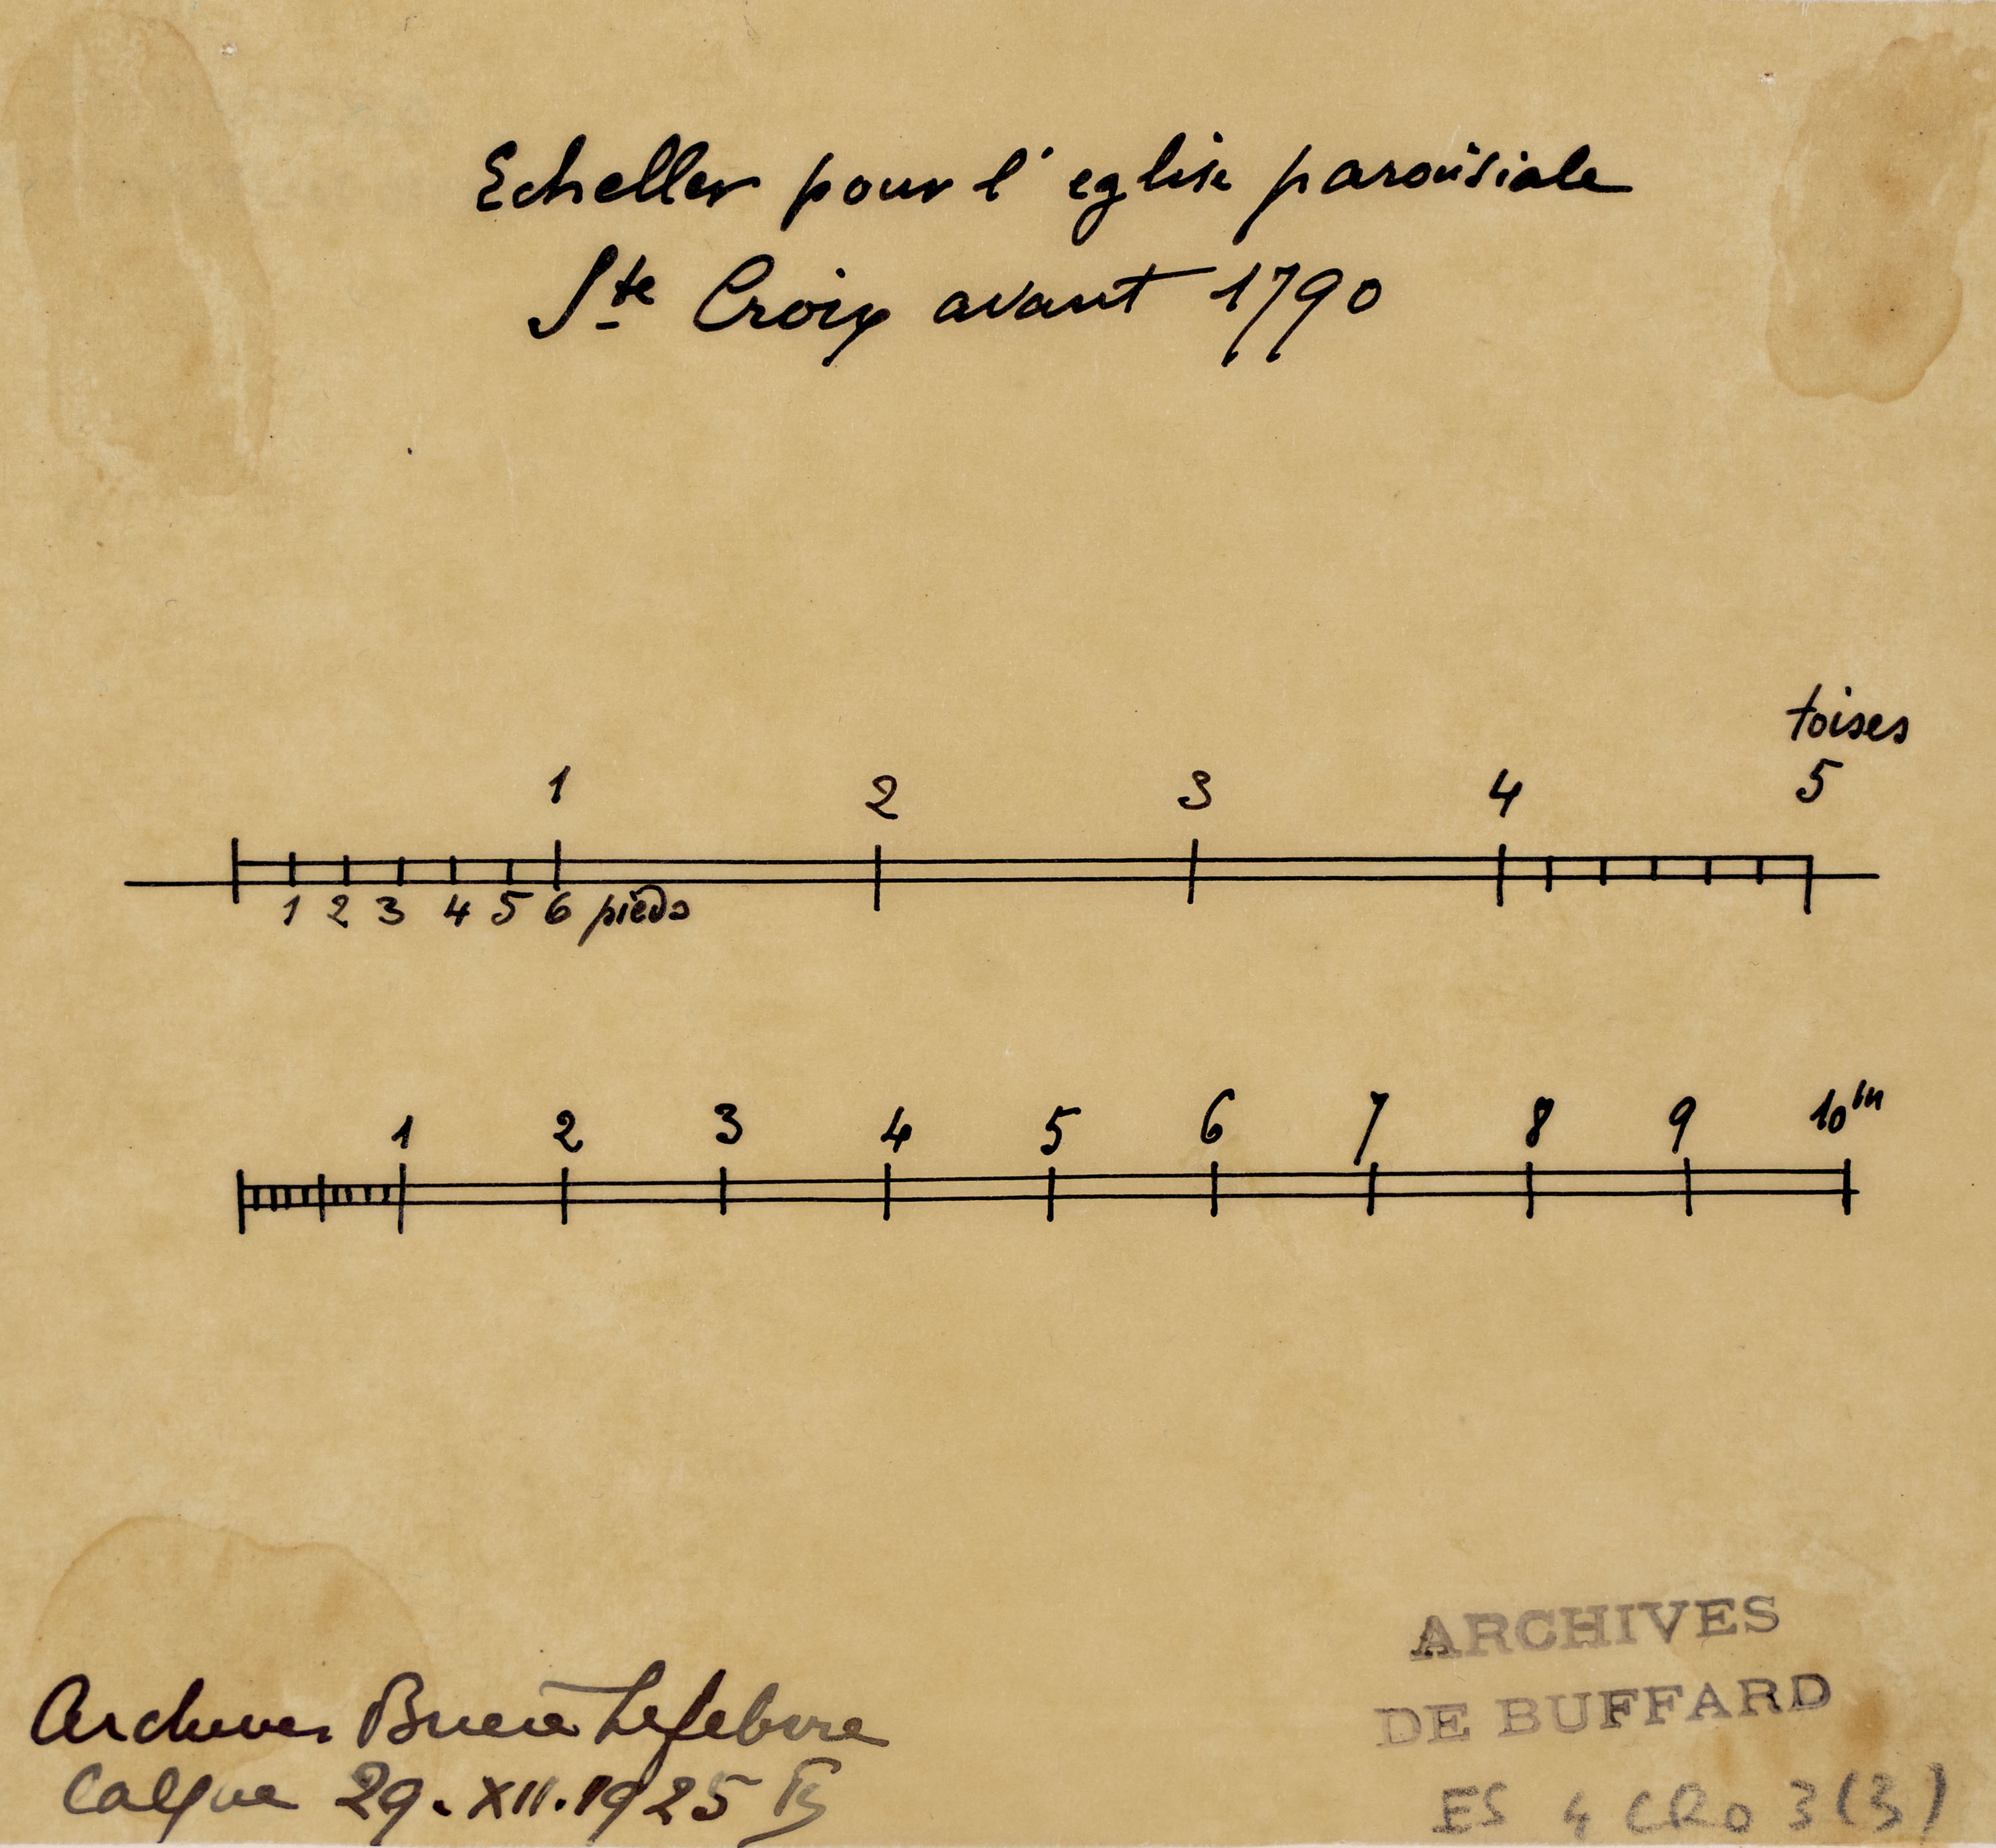 Echelles pour l'eglise paroissiale
Ste Croix avant 1790
toises
1 2 3 4 5
1 2 3 4 5 6 pieds
1 2 3 4 5 6 7 8 9 10m
Archives Lefebvre
Calque 29.XII.1925
ARCHIVES
DE BUFFARD
ES 4 CRO 3(3)